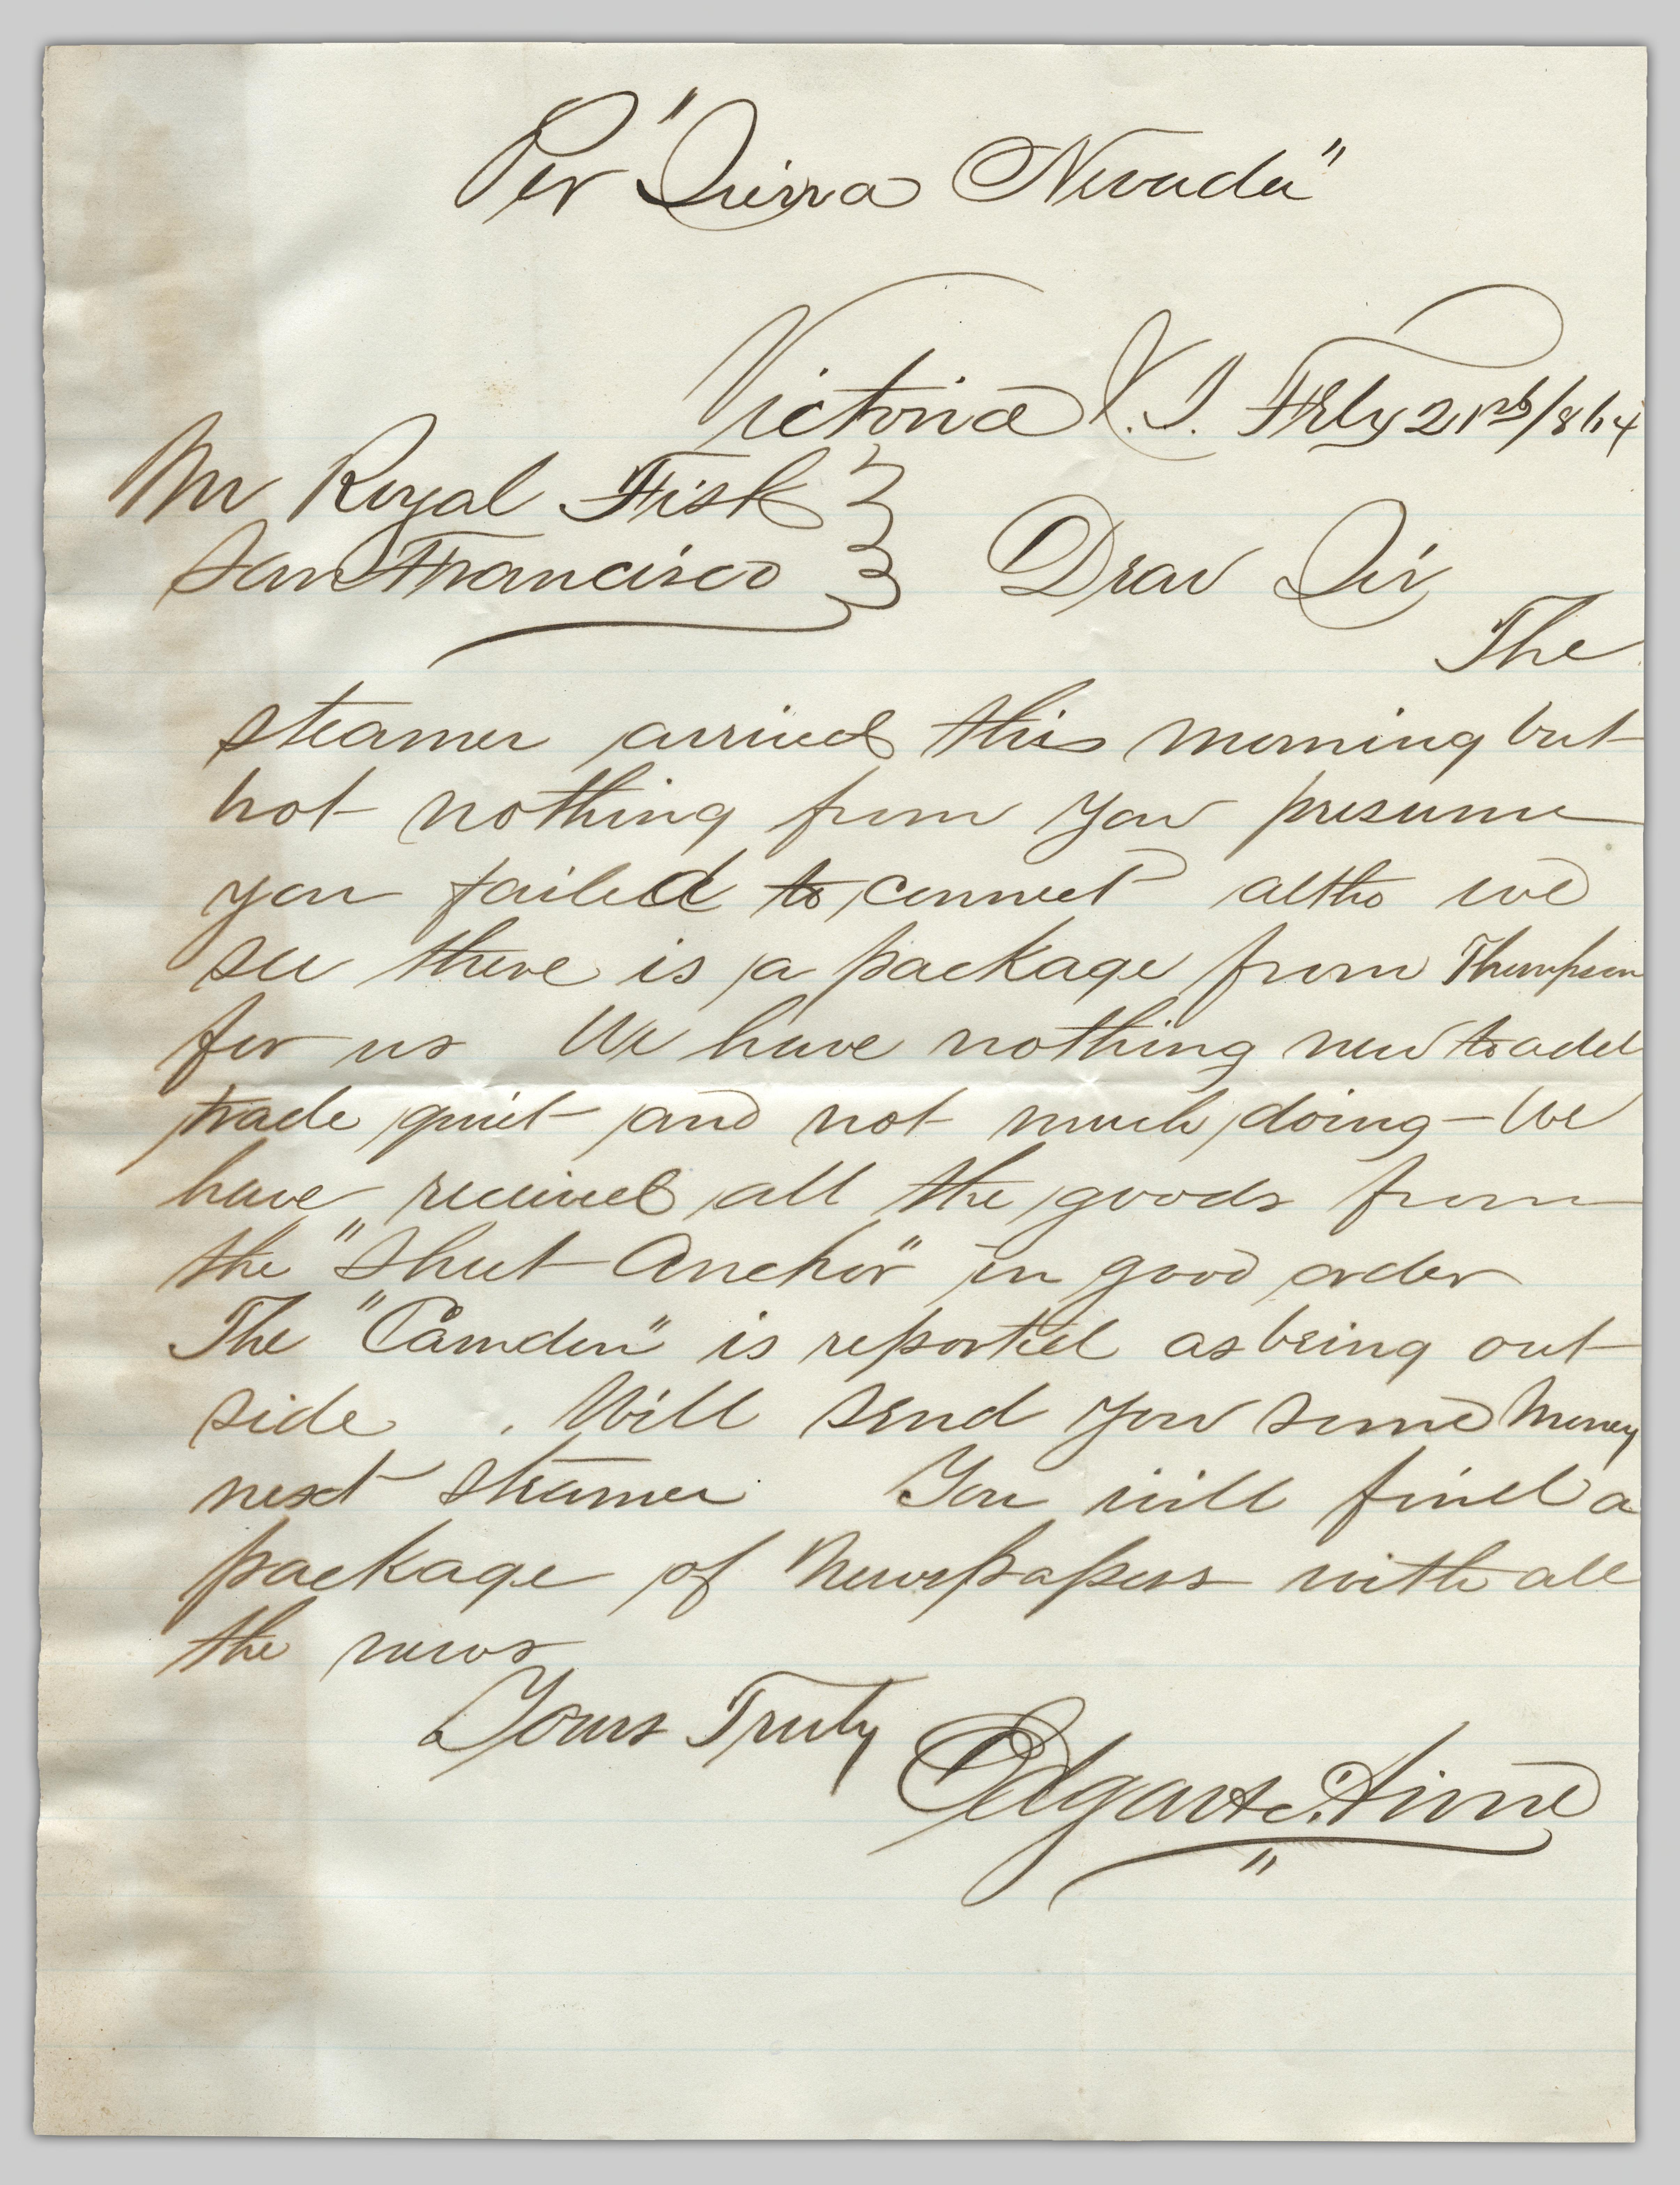 Per "Sierra Nevada"
Victoria V.I. Feby 21st/864
Mr Royal Fisk
San Francisco
Dear Sir
The
steamer arrived this morning but
not nothing from you presume
you failed to connect altho we
see there is a package from Thompson
for us We have nothing new to add
trade quiet and not much doing - We
have received all the goods from
the "Sheet Anchor" in good order
The "Camden" is reported as being out
side . Will send you some money
next steamer You will find a
package of Newspapers with all
the news
Yours Truly
Edgar &